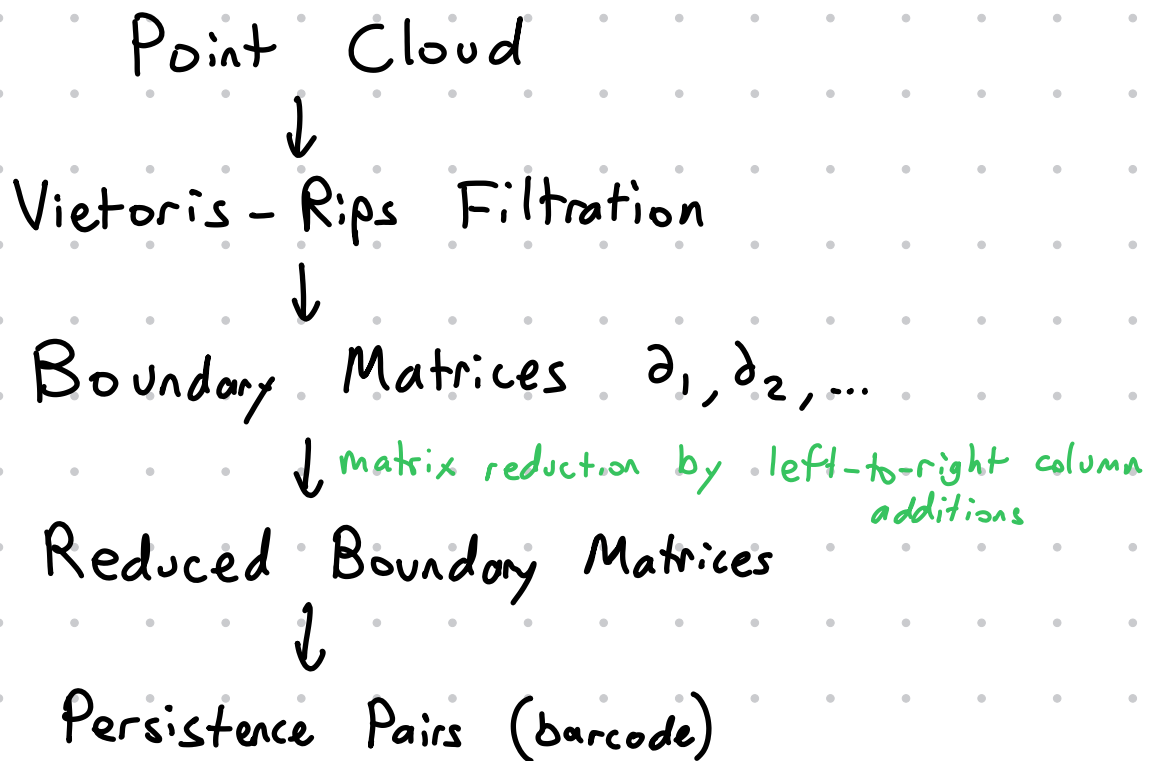 Point Cloud
↓
Vietoris-Rips Filtration
↓
Boundary Matrices ∂₁, ∂₂, ...
↓ matrix reduction by left-to-right column
additions
Reduced Boundary Matrices
↓
Persistence Pairs (barcode)